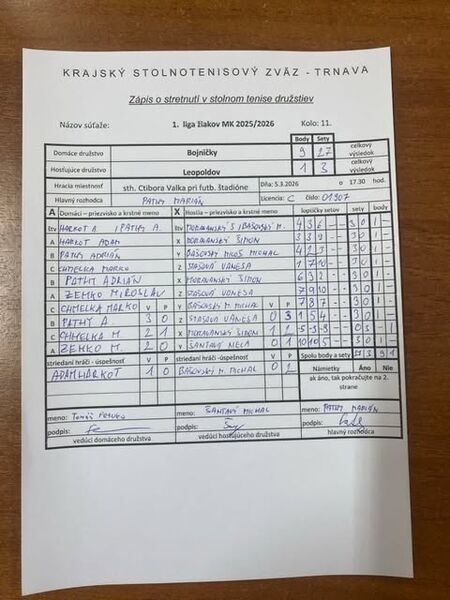 KRAJSKÝ STOLNOTENISOVÝ ZVÄZ - TRNAVA
Zápis o stretnutí v stolnom tenise družstiev
Názov súťaže: 1. liga žiakov MK 2025/2026 Kolo: 11.
Body Sety
Domáce družstvo Bojničky 9 27 celkový výsledok
Hosťujúce družstvo Leopoldov 1 3 celkový výsledok
Hracia miestnosť sth. Ctibora Valka pri futb. štadióne Dňa: 5.3.2026 o 17.30 hod.
Hlavný rozhodca PATHY MARIÁN Licencia: C číslo: 01907
A Domáci - priezvisko a krstné meno X Hostia - priezvisko a krstné meno loptičky setov sety body
štv HARKOT A. PATHY A. štv MORAVANSKÝ Š. BAŠOVSKÝ M. 4 3 6 - - 3 0 1 -
A HARKOT ADAM X MORAVANSKÝ ŠIMON 3 3 9 - - 3 0 1 -
B PATHY ADRIÁN Y BAŠOVSKÝ MICHAL 4 2 3 - - 3 0 1 -
C CHMELKA MARKO Z STAŠOVÁ VANESA 1 7 10 - - 3 0 1 -
B PATHY ADRIÁN X MORAVANSKÝ ŠIMON 6 3 2 - - 3 0 1 -
A ZEMKO MIROSLAV Z STAŠOVÁ VANESA 7 9 10 - - 3 0 1 -
C CHMELKA MARKO V P Y BAŠOVSKÝ M. MICHAL V P 7 8 7 - - 3 0 1 -
B PATHY A. 3 0 Z STAŠOVÁ VANESA 0 3 1 5 4 - - 3 0 1 -
C CHMELKA M. 2 1 X MORAVANSKÝ ŠIMON 1 2 - - 0 3 - 1
A ZEMKO M. 2 0 Y ŠANTAVÝ 0 1 10 10 5 - - 3 0 1 -
striedaní hráči - úspešnosť V P striedaní hráči - úspešnosť V P Spolu body a sety 9 1
ADAM HARKOT 1 0 BAŠOVSKÝ M. MICHAL 0 2 Námietky Áno Nie
ak áno, tak pokračujte na 2. strane
meno: Tomáš meno: ŠANTAVÝ MICHAL meno: PATHY MARIÁN
podpis: podpis: podpis:
vedúci domáceho družstva vedúci hosťujúceho družstva hlavný rozhodca